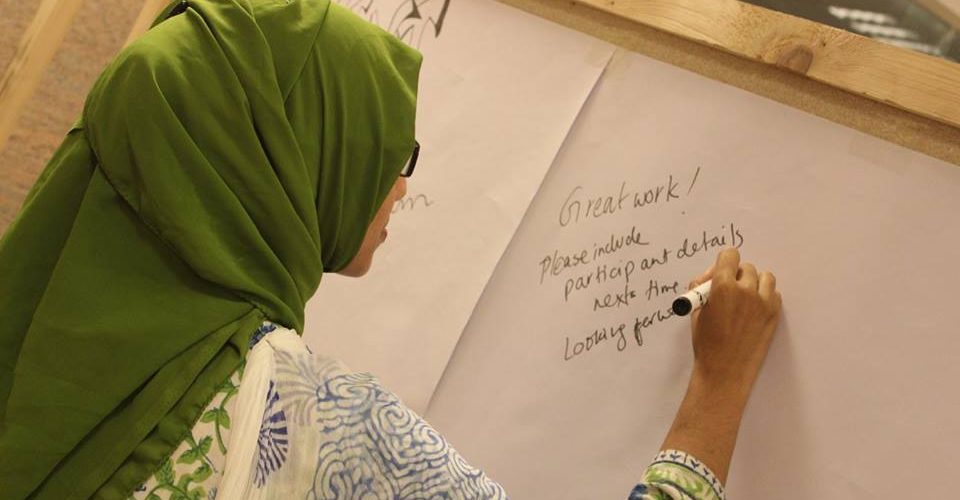 Great work!
Please include
participant details
next time.
Looking forw